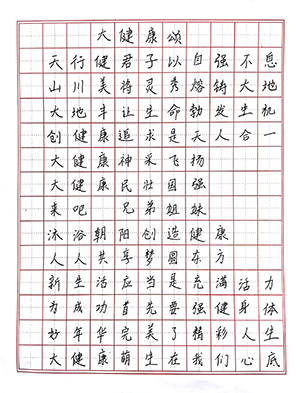 大健康颂
天行健君子以自强不息
山川美将灵秀熔铸大地
大地丰让生命勃发生机
创健康追求是天人合一
大健康神采飞扬
大健康民壮国强
来吧 兄弟姐妹
沐浴朝阳创造健康
人人共享梦圆东方
新生活应当是充满活力
为成功首先要强健身体
好年华完美了精彩人生
大健康萌生在我们心底